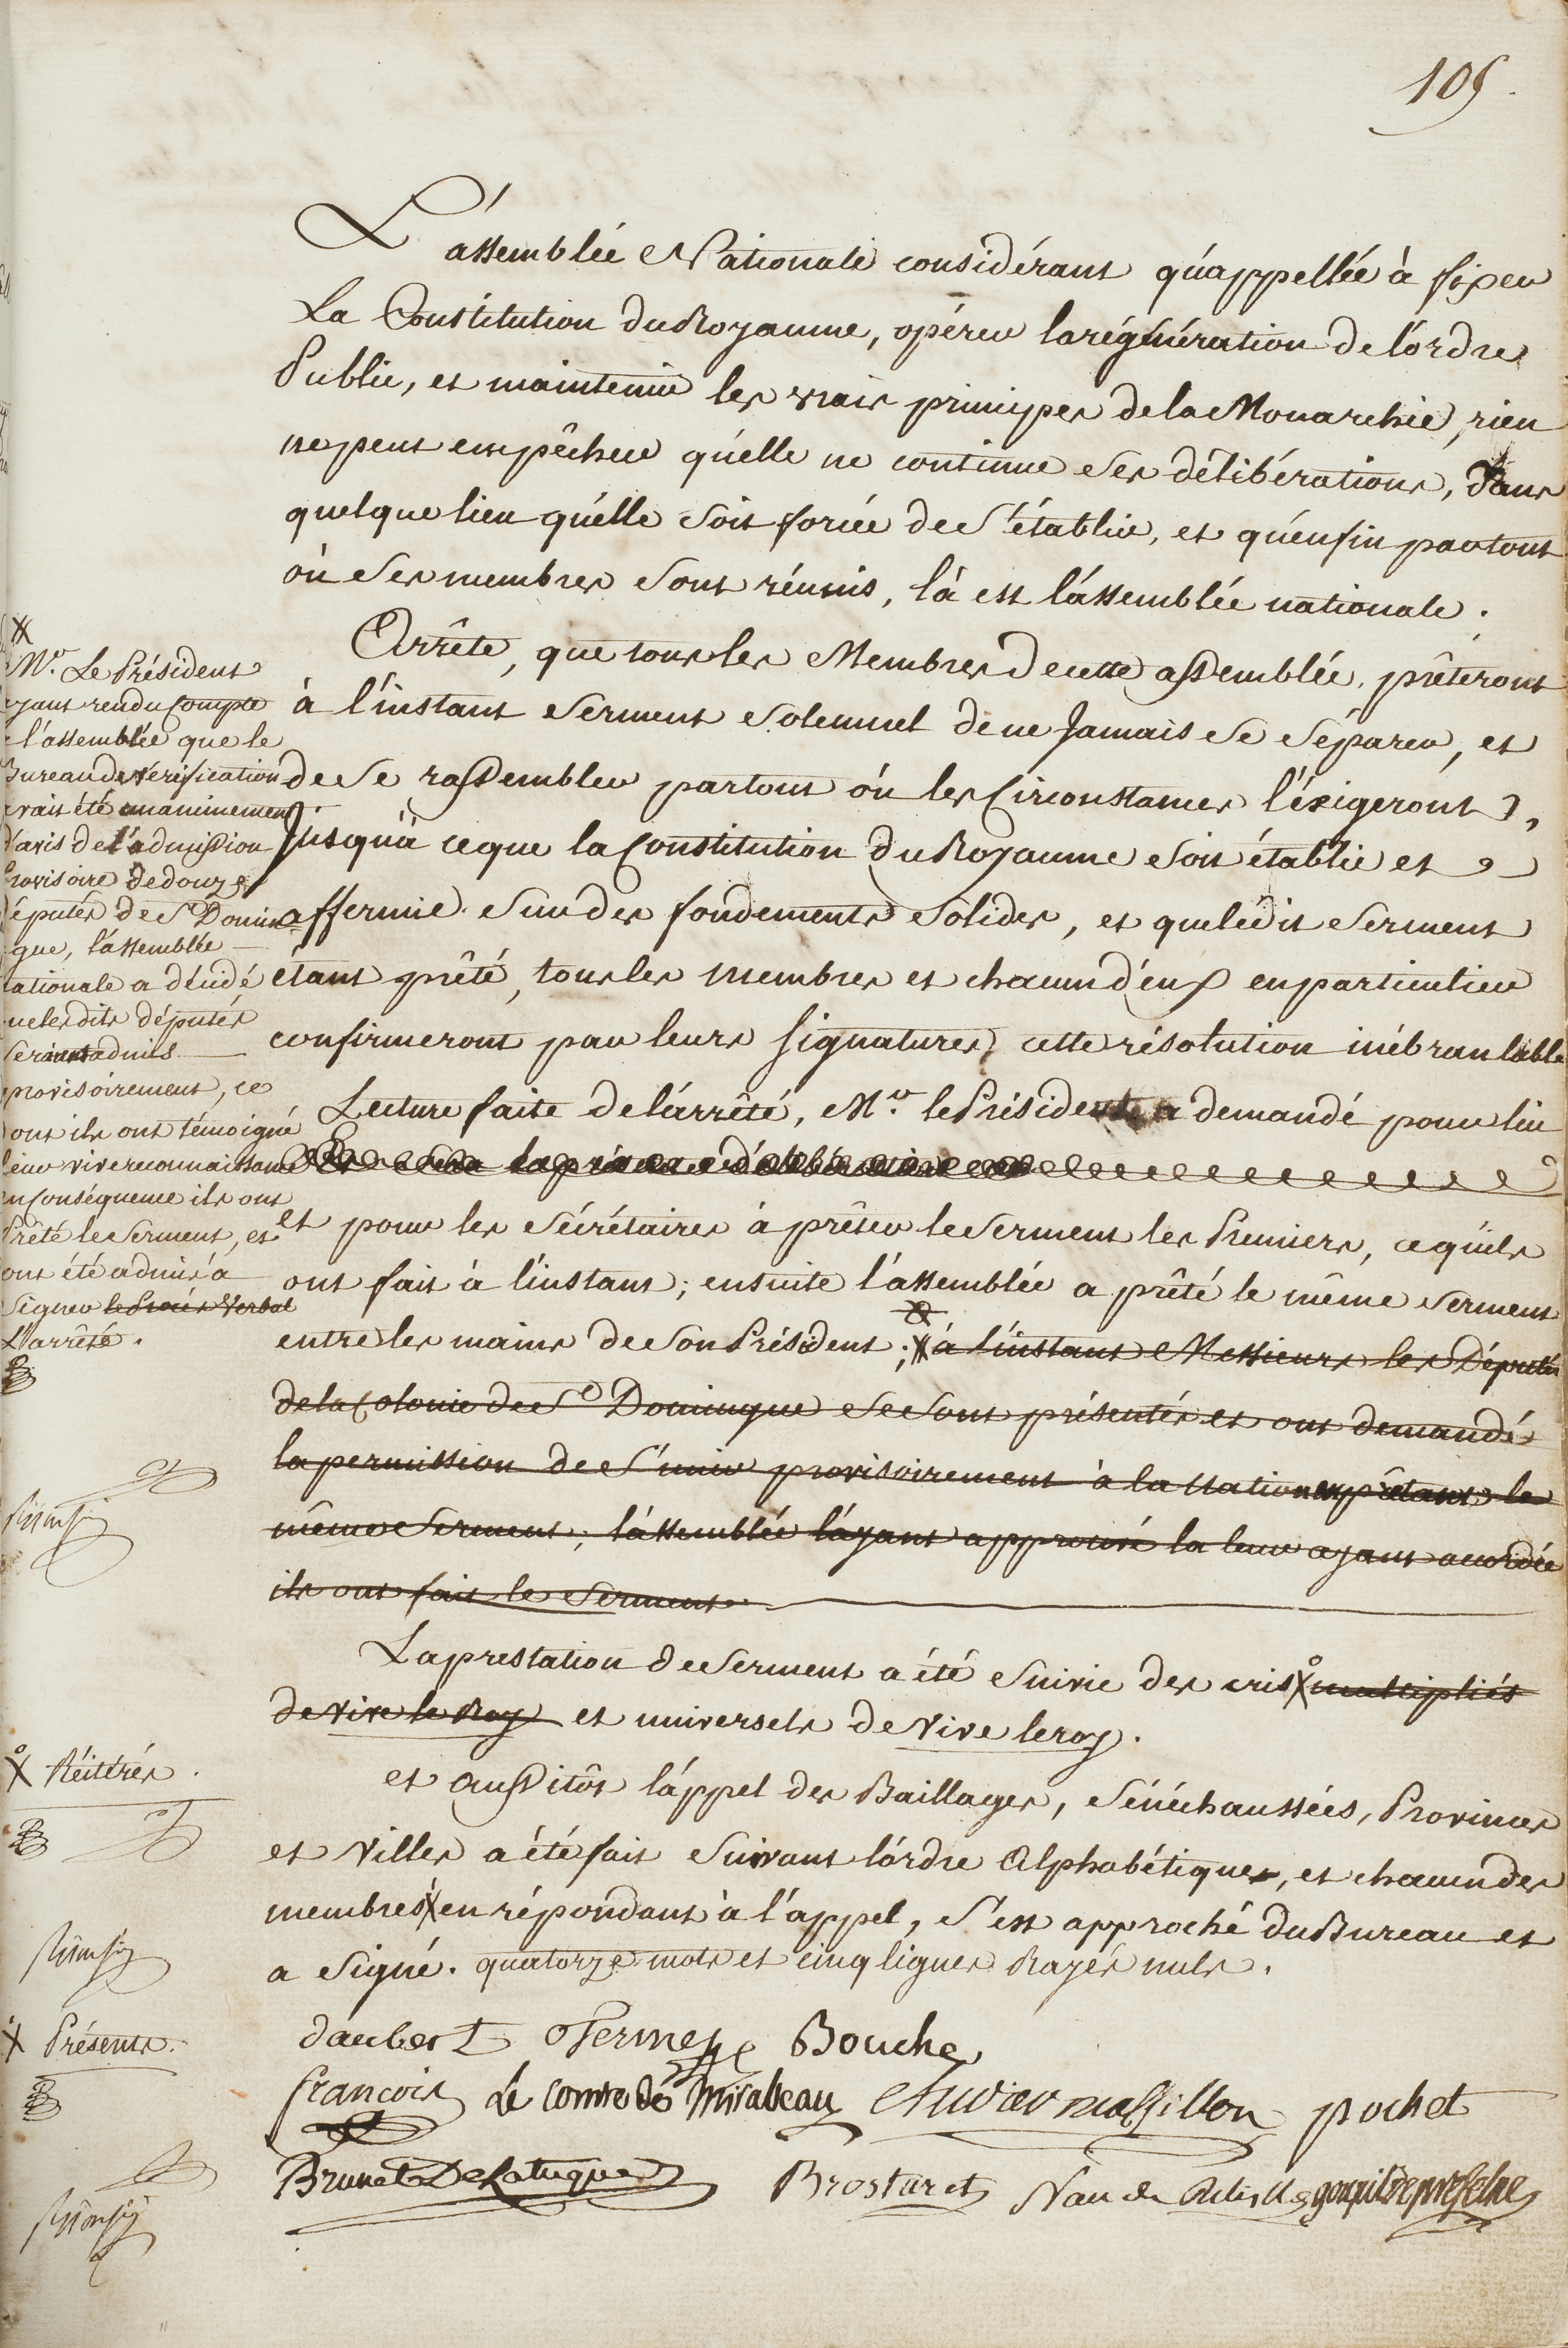 105.
L'assemblée Nationale considérant qu'appellée à fixer
La Constitution du Royaume, opérer la régénération de l'ordre
Public, et maintenir les vrais principes de la Monarchie, rien
ne peut empêcher qu'elle ne continue ses délibérations, dans
quelque lieu qu'elle soit forcée de s'établir, et qu'enfin partout
où ses membres sont réunis, là est l'assemblée nationale.
Arrête, que tous les Membres de cette assemblée, prêteront
à l'instant serment solemnel de ne Jamais se séparer, et
de se rassembler partout où les Circonstances l'éxigeront,
Jusqu'à ce que la Constitution du Royaume soit établie et
affermie sur des fondements solides, et que ledit serment
étant prêté, tous les membres et chacun d'eux en particulier
confirmeront par leurs signatures, cette résolution inébranlable
Lecture faite de l'arrêté, Mr. le Président a demandé pour lui
et pour les sécrétaires à prêter le serment les Premiers, ce qu'ils
ont fait à l'instant; ensuite l'assemblée a prêté le même serment
entre les mains de son Président; à l'instant Messieurs les Députés
de la Colonie de St Domingue se sont présentés et ont demandé
la permission de s'unir provisoirement à la Nation en prêtant le
même serment; l'assemblée l'ayant approuvé la leur ayant accordée
ils ont fait le serment
La prestation de serment a été suivie des cris multipliés
de vive le Roy et universels de Vive le roy.
et aussitôt l'appel des Baillages, sénéchaussées, Provinces
et Villes a été fait suivant l'ordre Alphabétique, et chacun des
membres en répondant à l'appel, s'est approché du Bureau et
a signé. quatorze mots et cinq lignes Rayés nuls.
Mr. Le Président
ayant rendu Compte
à l'assemblée que le
Bureau de Vérification
avait été unanimement
d'avis de l'admission
provisoire de douze
députés de St Domin
gue, l'assemblée
nationale a décidé
que lesdits députés
seraient admis
provisoirement, ce
dont ils ont témoigné
leur vive reconnaissance
en Conséquence ils ont
Prêté le serment, et
ont été admis à
signer le Procès Verbal
L'arrêté.
Réitérés.
Présents.
daubert Bouche
françois Le comte de Mirabeau massillon pochet
Brunet De Latuque Brostaret goupil de prefelne